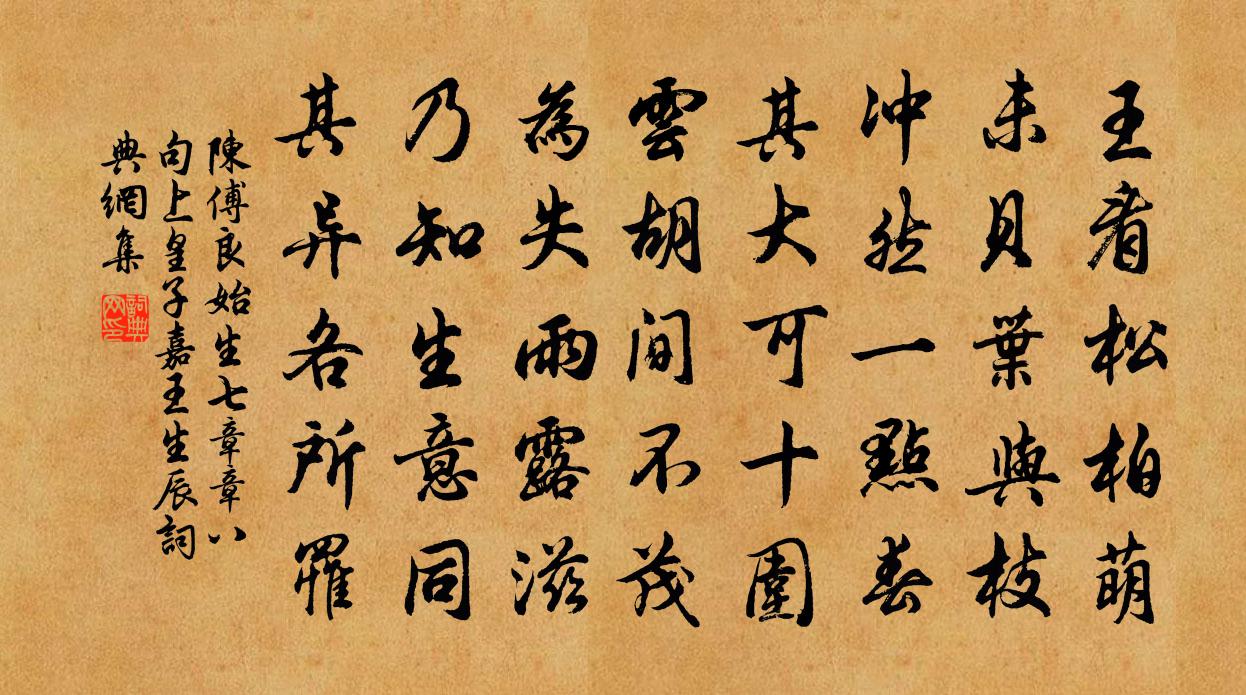 王看松柏萌
未見葉與枝
冲然一點春
其大可十圍
雲胡間不茂
為失雨露滋
乃知生意同
其异各所罹
陳傅良始生七章章八
句上皇子嘉王生辰詞
典網集
詞典
网印